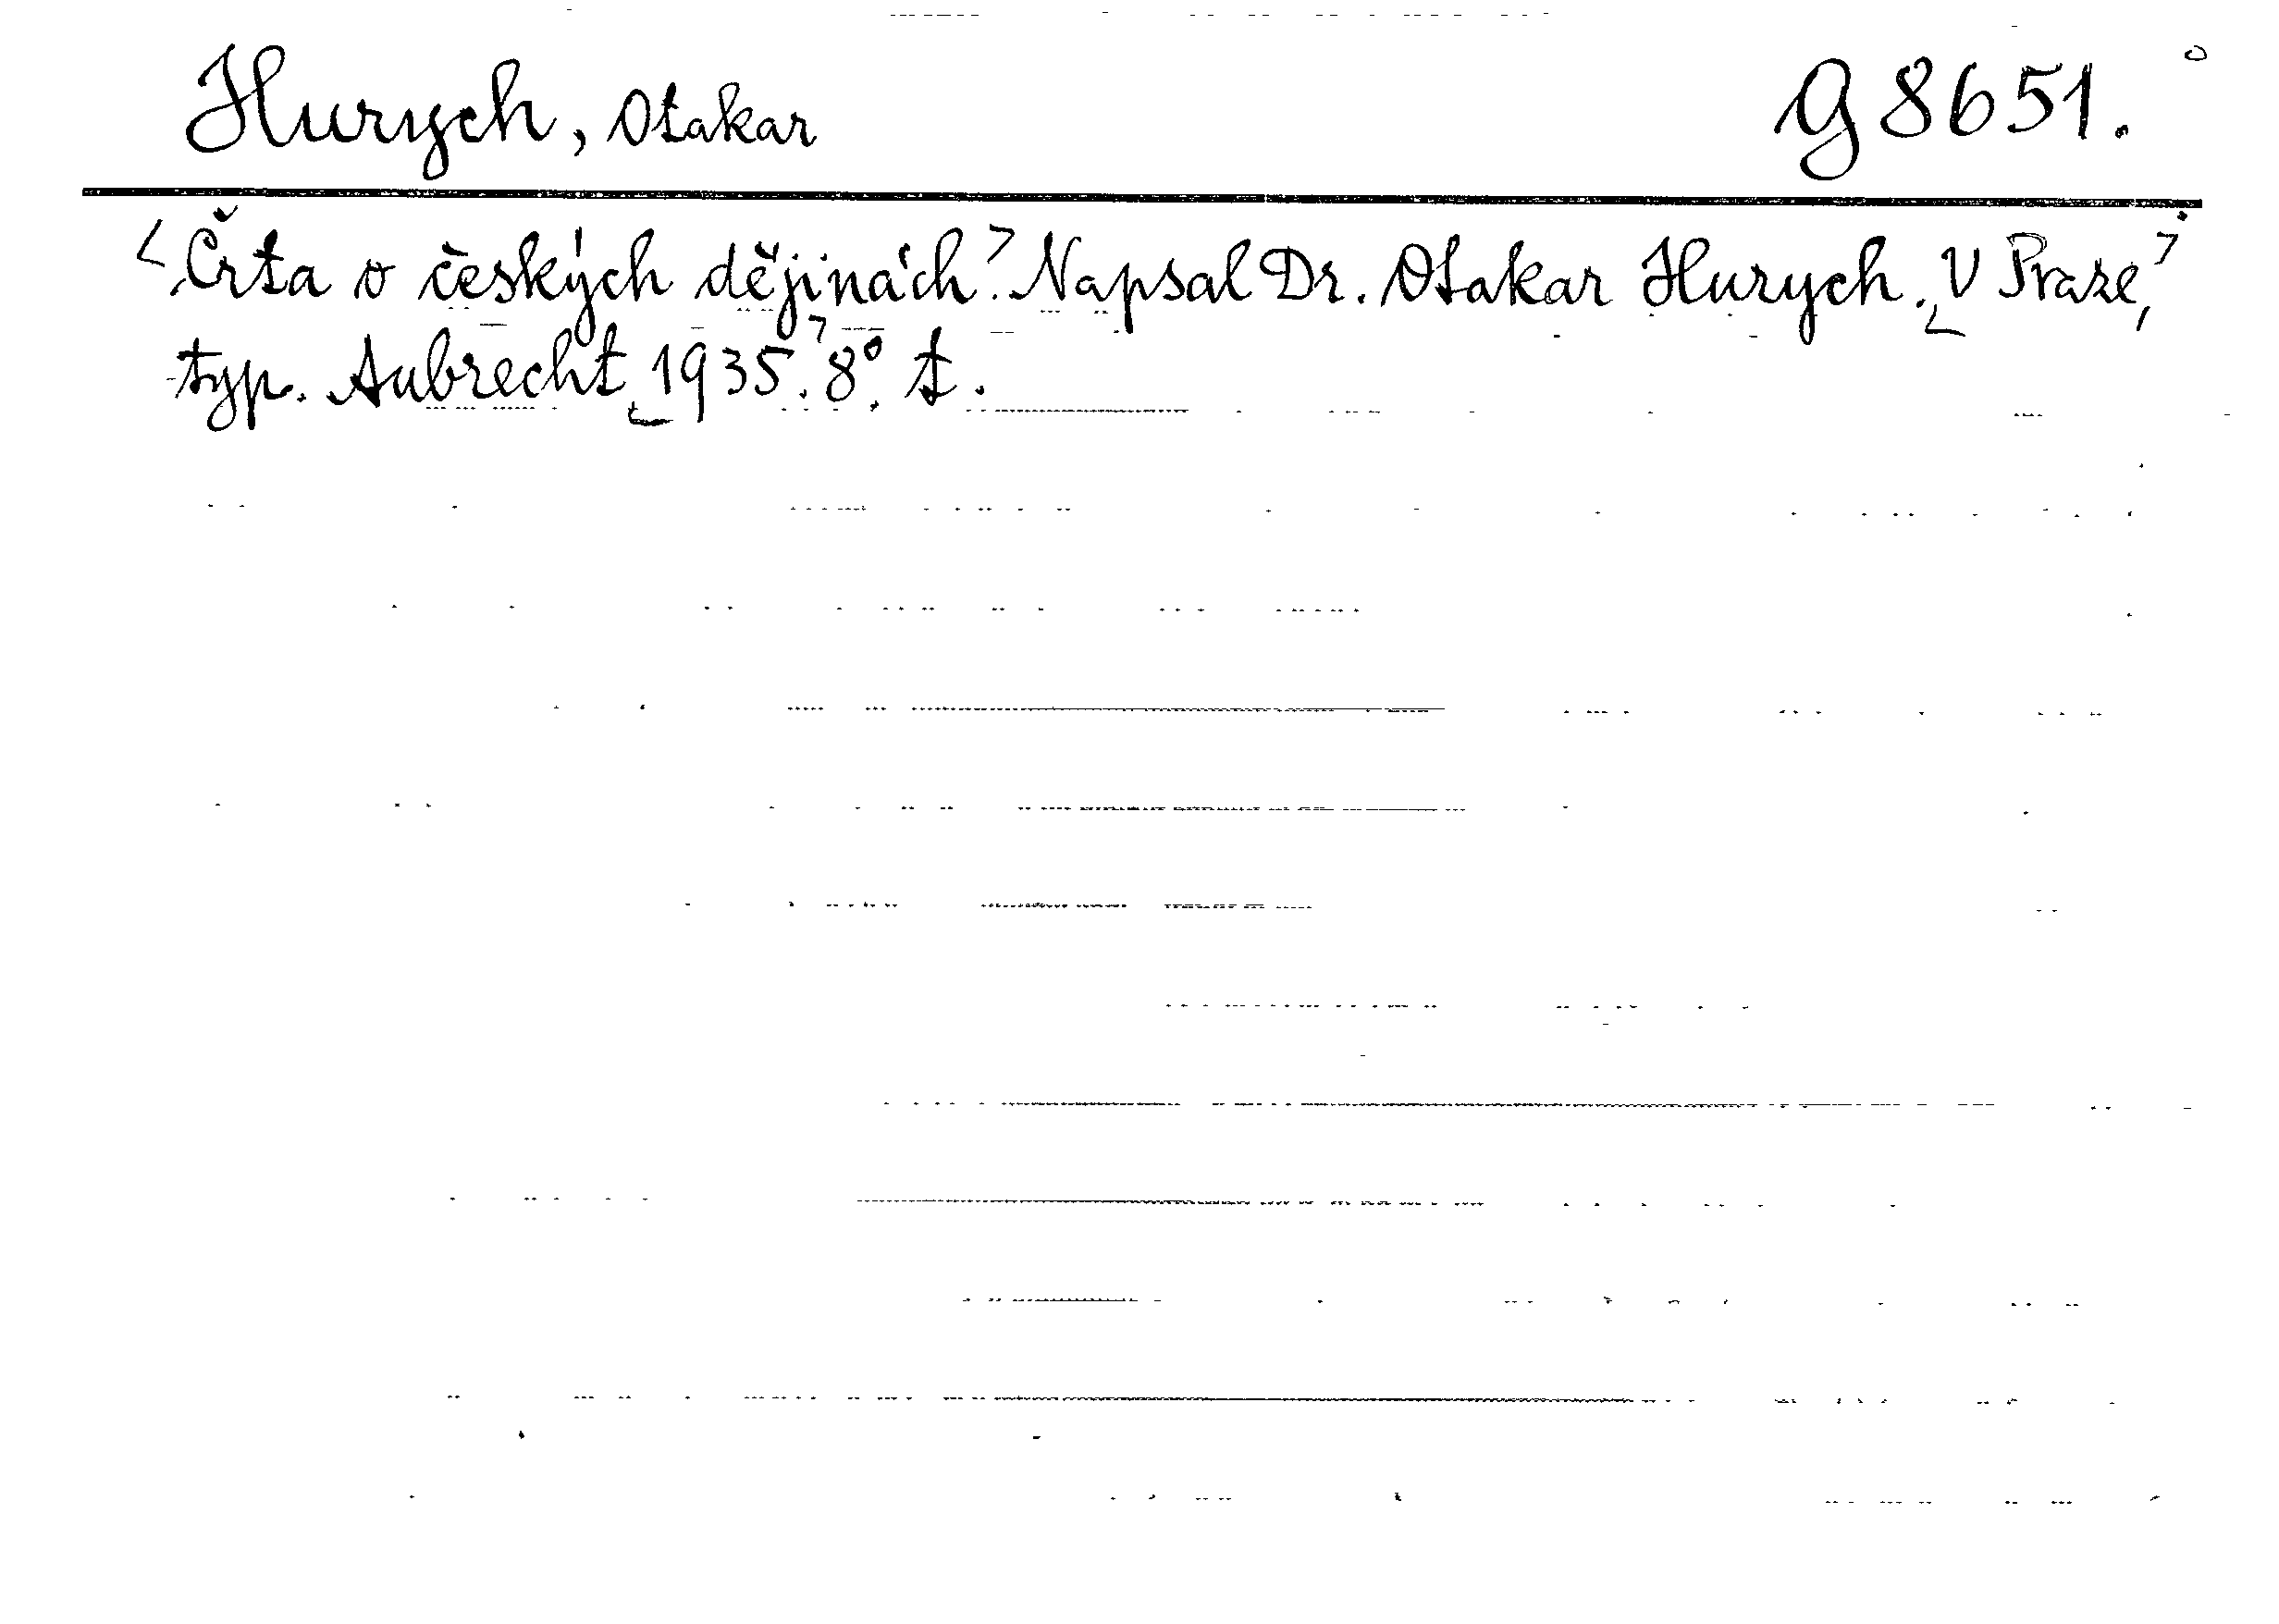 Hurych, Otakar G 8651.
<Črta o českých dějinách.> Napsal Dr. Otakar Hurych. <V Praze,>
typ. Aubrecht <1935.> 8°. t.